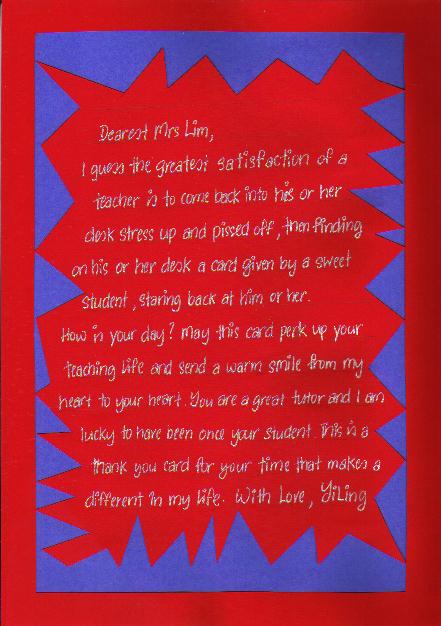 Dearest Mrs Lim,
I guess the greatest satisfaction of a
teacher is to come back into his or her
desk stress up and pissed off, then finding
on his or her desk a card given by a sweet
student, staring back at him or her.
How is your day? May this card perk up your
teaching life and send a warm smile from my
heart to your heart. You are a great tutor and I am
lucky to have been once your student. This is a
thank you card for your time that makes a
different in my life. With Love, YiLing